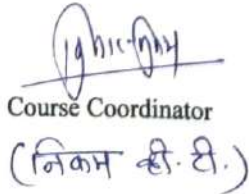 Course Coordinator
(निकम व्ही. टी.)